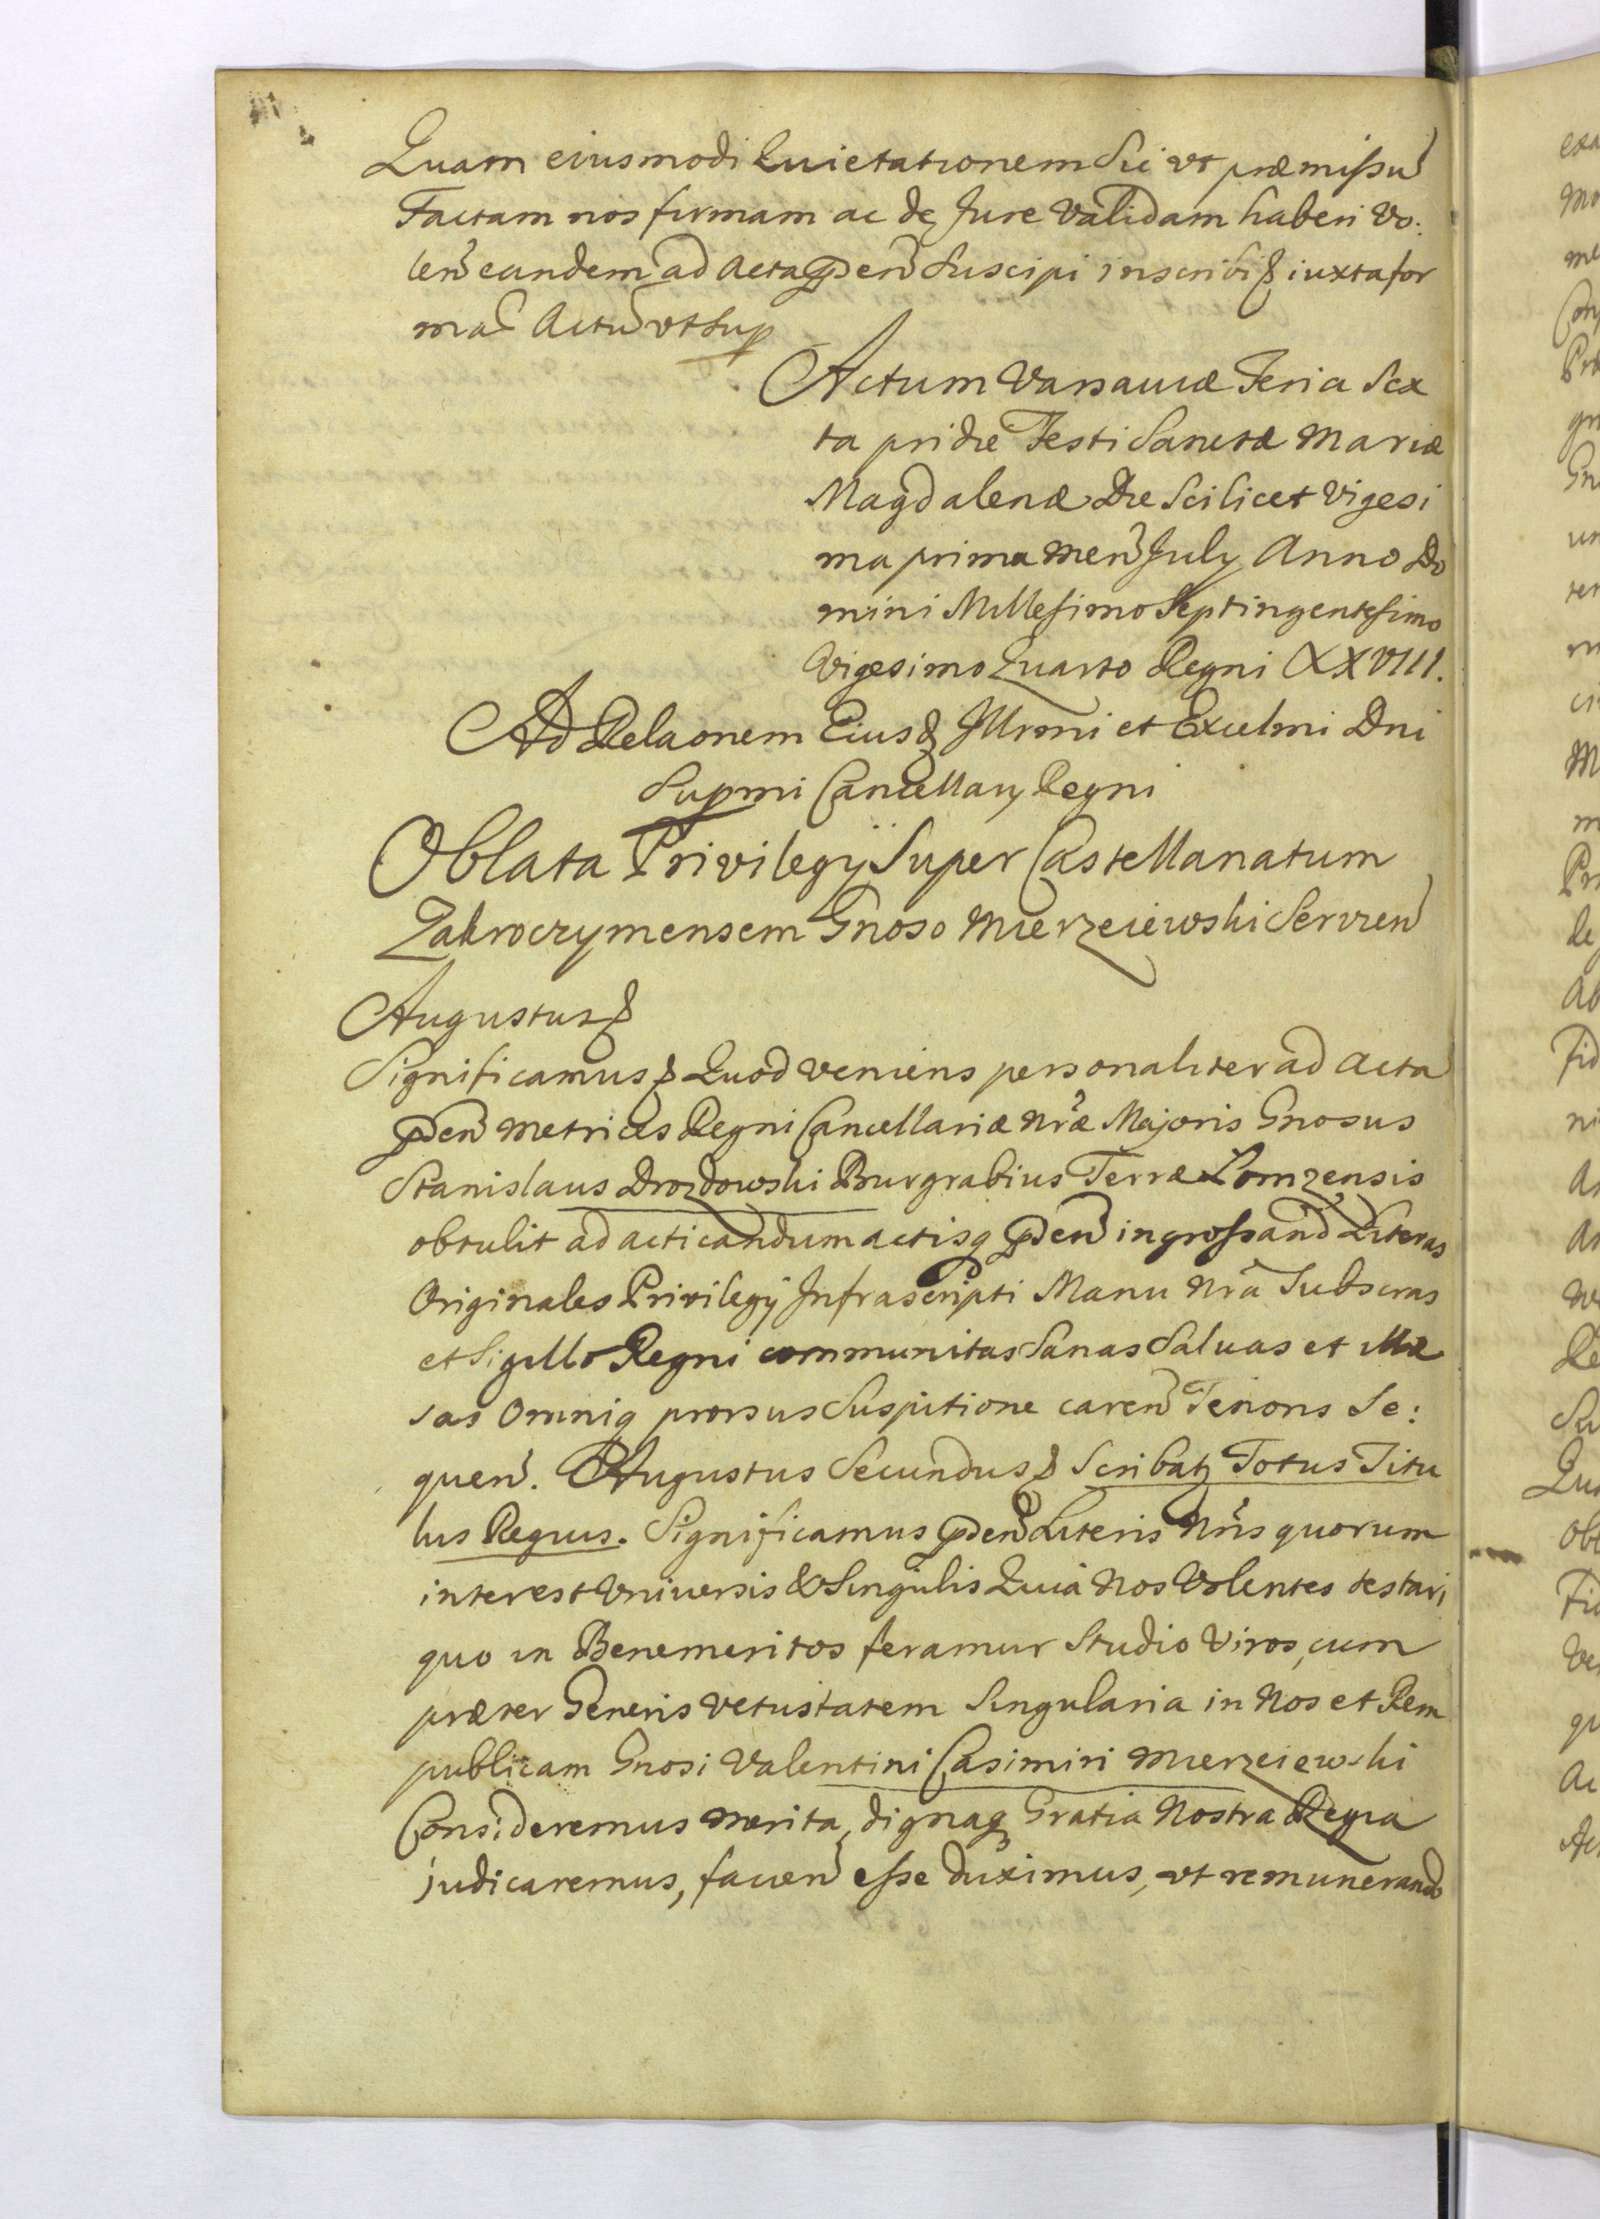 Quam eiusmodi Quietationem Sic vt præmissũ
Factam nos firmam ac de Jure Validam haberi Vo:
leñ eandem ad Acta pñ Suscipi inscribi & iuxta for
mã Actũ vt Sup
Actum Varsauiæ Feria Sex
ta pridie Festi Sanctæ Mariæ
Magdalenæ Die Scilicet Vigesi
ma prima Meñ July Anno Do
mini Millesimo Septingentesimo
Vigesimo Quarto Regni XXVIII.
Ad Relaonem Eiusd Illrmi et Excelmi Dni
Supmi Cancellary Regni
Oblata Privilegÿ Super Castellanatum
Zakroczymensem Gnoso Mierzeiewski Servieñ
Augustus &
Significamus & Quod veniens personaliter ad Acta
pdeñ Metrices Regni Cancellariæ Nræ Majoris Gnosus
Stanislaus Drozdowski Burgrabius Terræ Lomzensis
obtulit ad acticandum actisq pdeñ ingrossand Literas
Originales Privilegÿ Infrascripti Manu Nrã Subscras
et Sigillo Regni communitas Sanas Saluas et illæ
sas Omniq prorsus Suspitione careñ Tenoris Se:
queñ. Augustus Secundus & Scribatz Totus Titu
lus Regius. Significamus pdeñ Literis Nris quorum
interest Vniuersis & Singulis Quia Nos Volentes testari
quo in Benemeritos feramur Studio Viros, cum
præter Generis vetustatem Singularia in Nos et Rem
publicam Gnosi Valentini Casimiri Mierzeiewski
Consideremus merita, dignaq Gratia Nostra Regia
judicaremus, faueñ esse duximus, vt remunerando